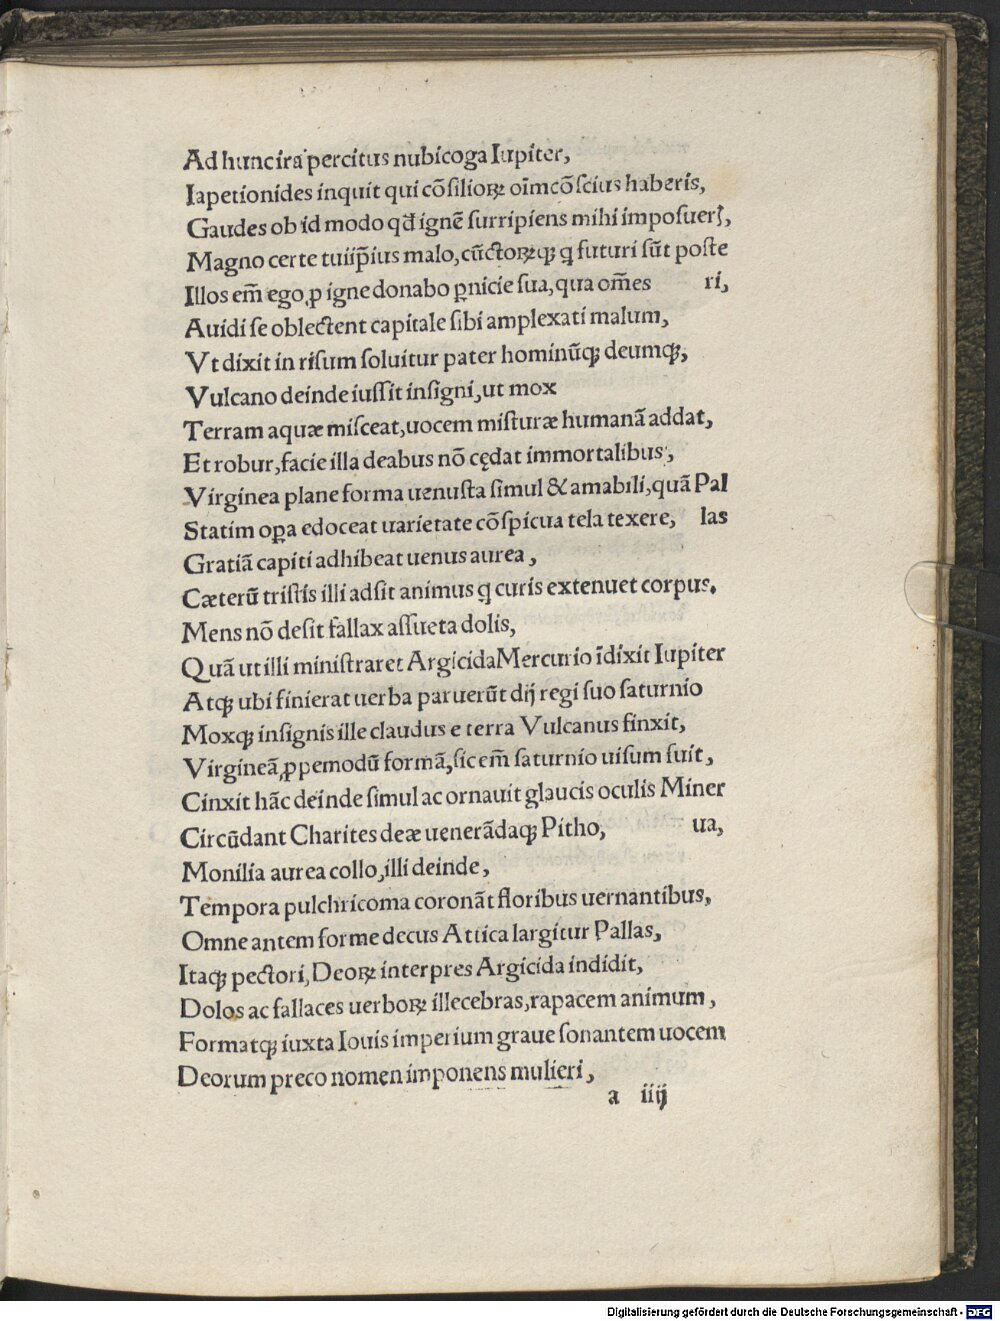 Ad hunc ira percitus nubicoga Iupiter,
Iapetionides inquit qui cõſilioꝝ oĩm cõſcius haberis,
Gaudes ob id modo qđ ignẽ ſurripiens mihi impoſuerꝭ,
Magno certe tuiip̃ius malo, cũctoꝝqꝫ q̃ futuri ſũt poſte
Illos em̃ ego ꝓ igne donabo ꝑnicie ſua, qua om̃es ri,
Auidi ſe oblectent capitale ſibi amplexati malum,
Vt dixit in riſum ſoluitur pater hominũqꝫ deumqꝫ,
Vulcano deinde iuſſit inſigni, ut mox
Terram aquæ miſceat, uocem miſturæ humanã addat,
Et robur, facie illa deabus nõ cędat immortalibus,
Virginea plane forma uenuſta ſimul & amabili, quã Pal
Statim oꝑa edoceat uarietate cõſpicua tela texere, las
Gratiã capiti adhibeat uenus aurea,
Cæterũ triſtis illi adſit animus q̃ curis extenuet corpus.
Mens nõ deſit fallax aſſueta dolis,
Quã ut illi miniſtraret Argicida Mercurio ĩdixit Iupiter
Atqꝫ ubi finierat uerba paruerũt dij regi ſuo ſaturnio
Moxqꝫ inſignis ille claudus e terra Vulcanus finxit,
Virgineã ꝓpemodũ formã, ſic em̃ ſaturnio uiſum fuit,
Cinxit hãc deinde ſimul ac ornauit glaucis oculis Miner
Circũdant Charites deæ uenerãdaqꝫ Pitho, ua,
Monilia aurea collo, illi deinde,
Tempora pulchricoma coronãt floribus uernantibus,
Omne antem forme decus Attica largitur Pallas,
Itaqꝫ pectori, Deoꝝ interpres Argicida indidit,
Dolos ac fallaces uerboꝝ illecebras, rapacem animum,
Formatqꝫ iuxta Iouis imperium graue ſonantem uocem
Deorum preco nomen imponens mulieri,
a iiij
Digitalisierung gefördert durch die Deutsche Forschungsgemeinschaft - DFG